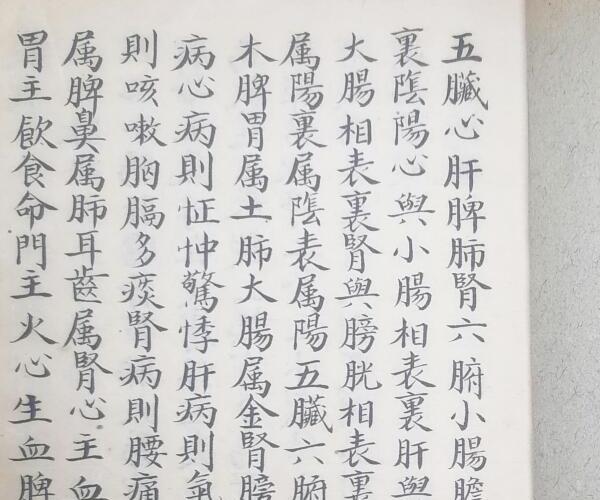 五臟心肝脾肺腎六腑小腸膽
裏陰陽心與小腸相表裏肝與
大腸相表裏腎與膀胱相表裏
属陽裏属陰表属陽五臟六腑
木脾胃属土肺大腸属金腎膀
病心病則怔忡驚悸肝病則氣
則咳嗽胸膈多痰腎病則腰痛
属脾鼻属肺耳齒属腎心主血
胃主飲食命門主火心生血脾